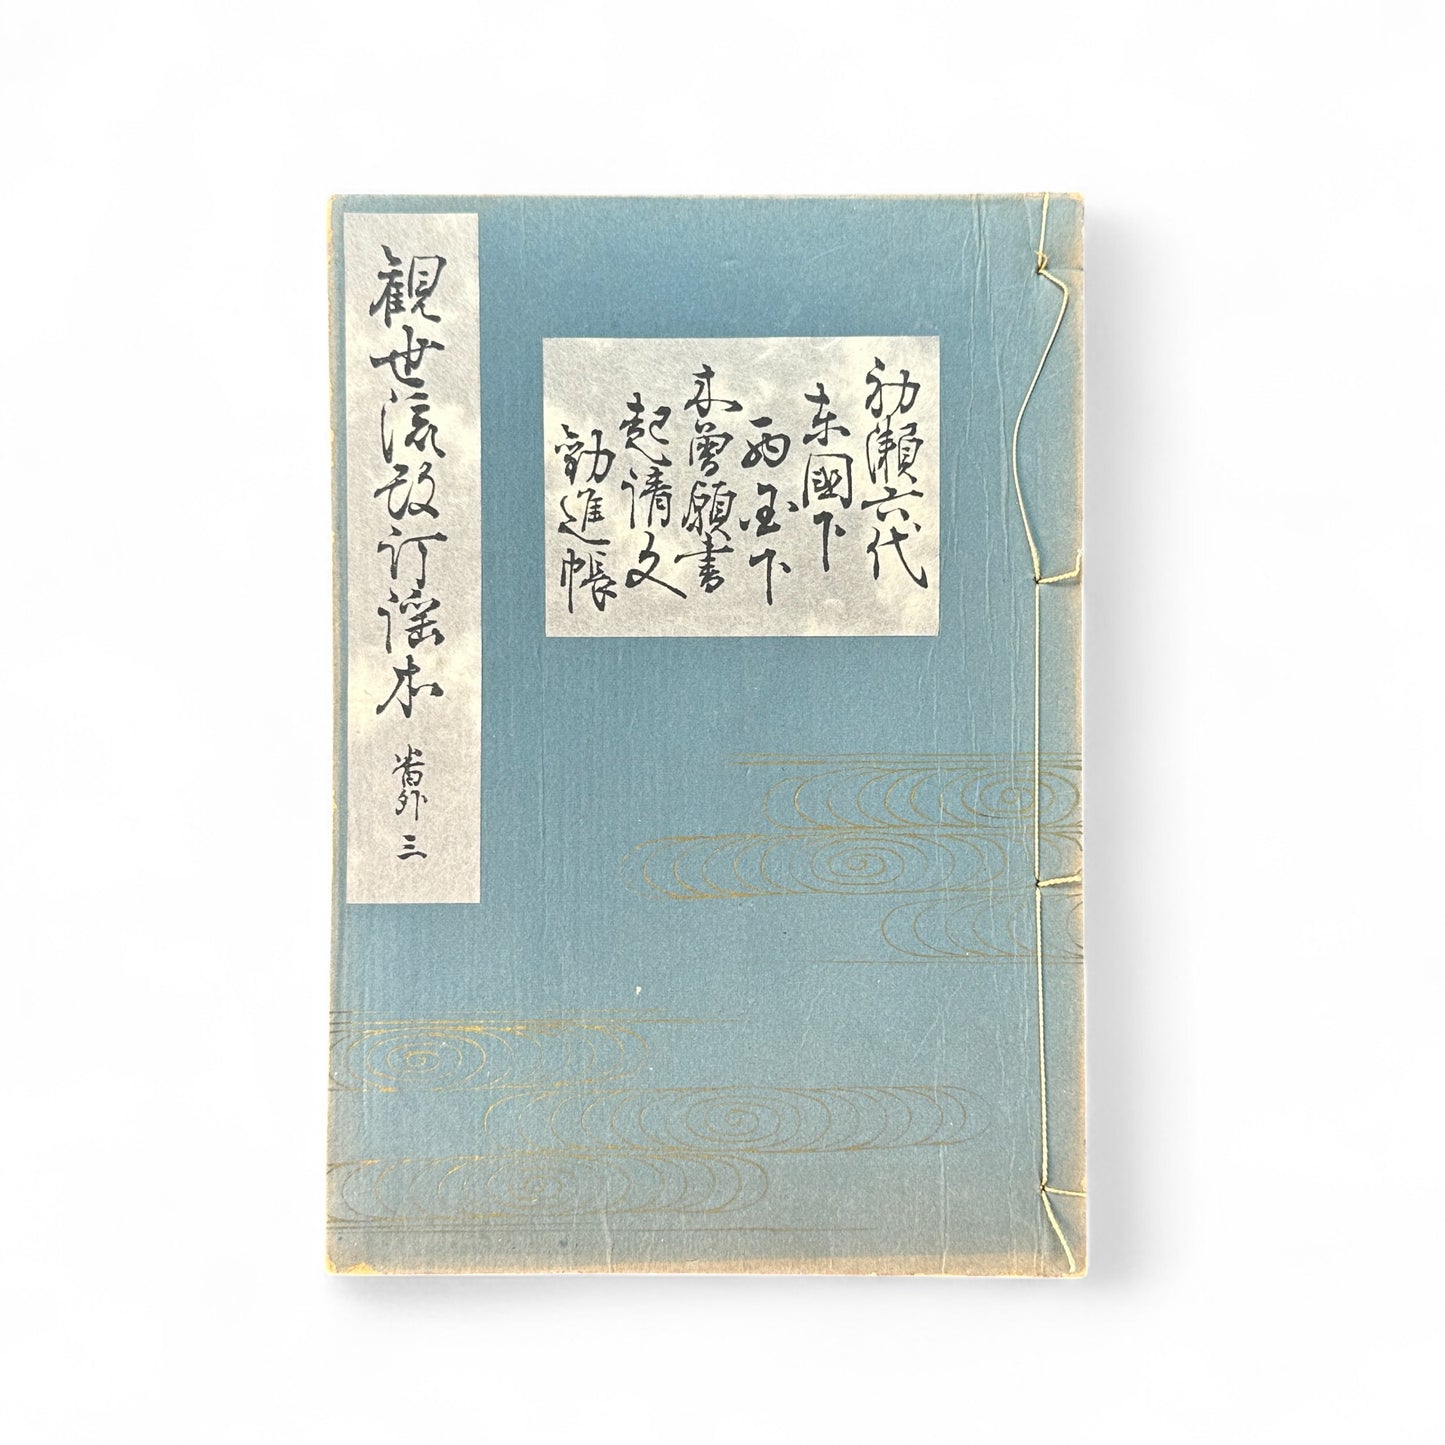 初瀬六代
东國下
西国下
木曽願書
起請文
勧進帳
観世流改訂謡本
番外 三